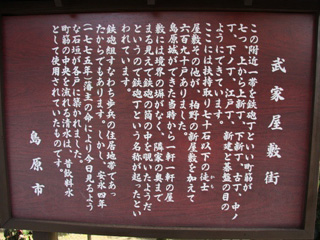 武家屋敷街
この附近一帯を鉄砲丁といい町筋が
七つ、上から新丁、下新丁、古丁、中ノ
丁、下ノ丁、江戸丁、新建と碁盤の目の
ようにできています。
ここには扶持取り七十石以下の徒士
屋敷で他が、柏野の新屋敷を加えて
六百九十戸ありました。
島原城ができた当時から一軒一軒の屋
敷には境界の塀がなく、隣家の奥まで
まる見えで鉄砲の筒の中を覗いたようだ
というので鉄砲丁という名称が起ったとい
われています。
鉄砲組すなわち歩兵の住居地帯であっ
たからでもあります。しかし、安永四年
(一七七五年)藩主の命により今日見るよう
な石垣が各戸に築かれました。
町筋の中央を流れる清水は、昔飲料水
として使用されていたものです。
島原市